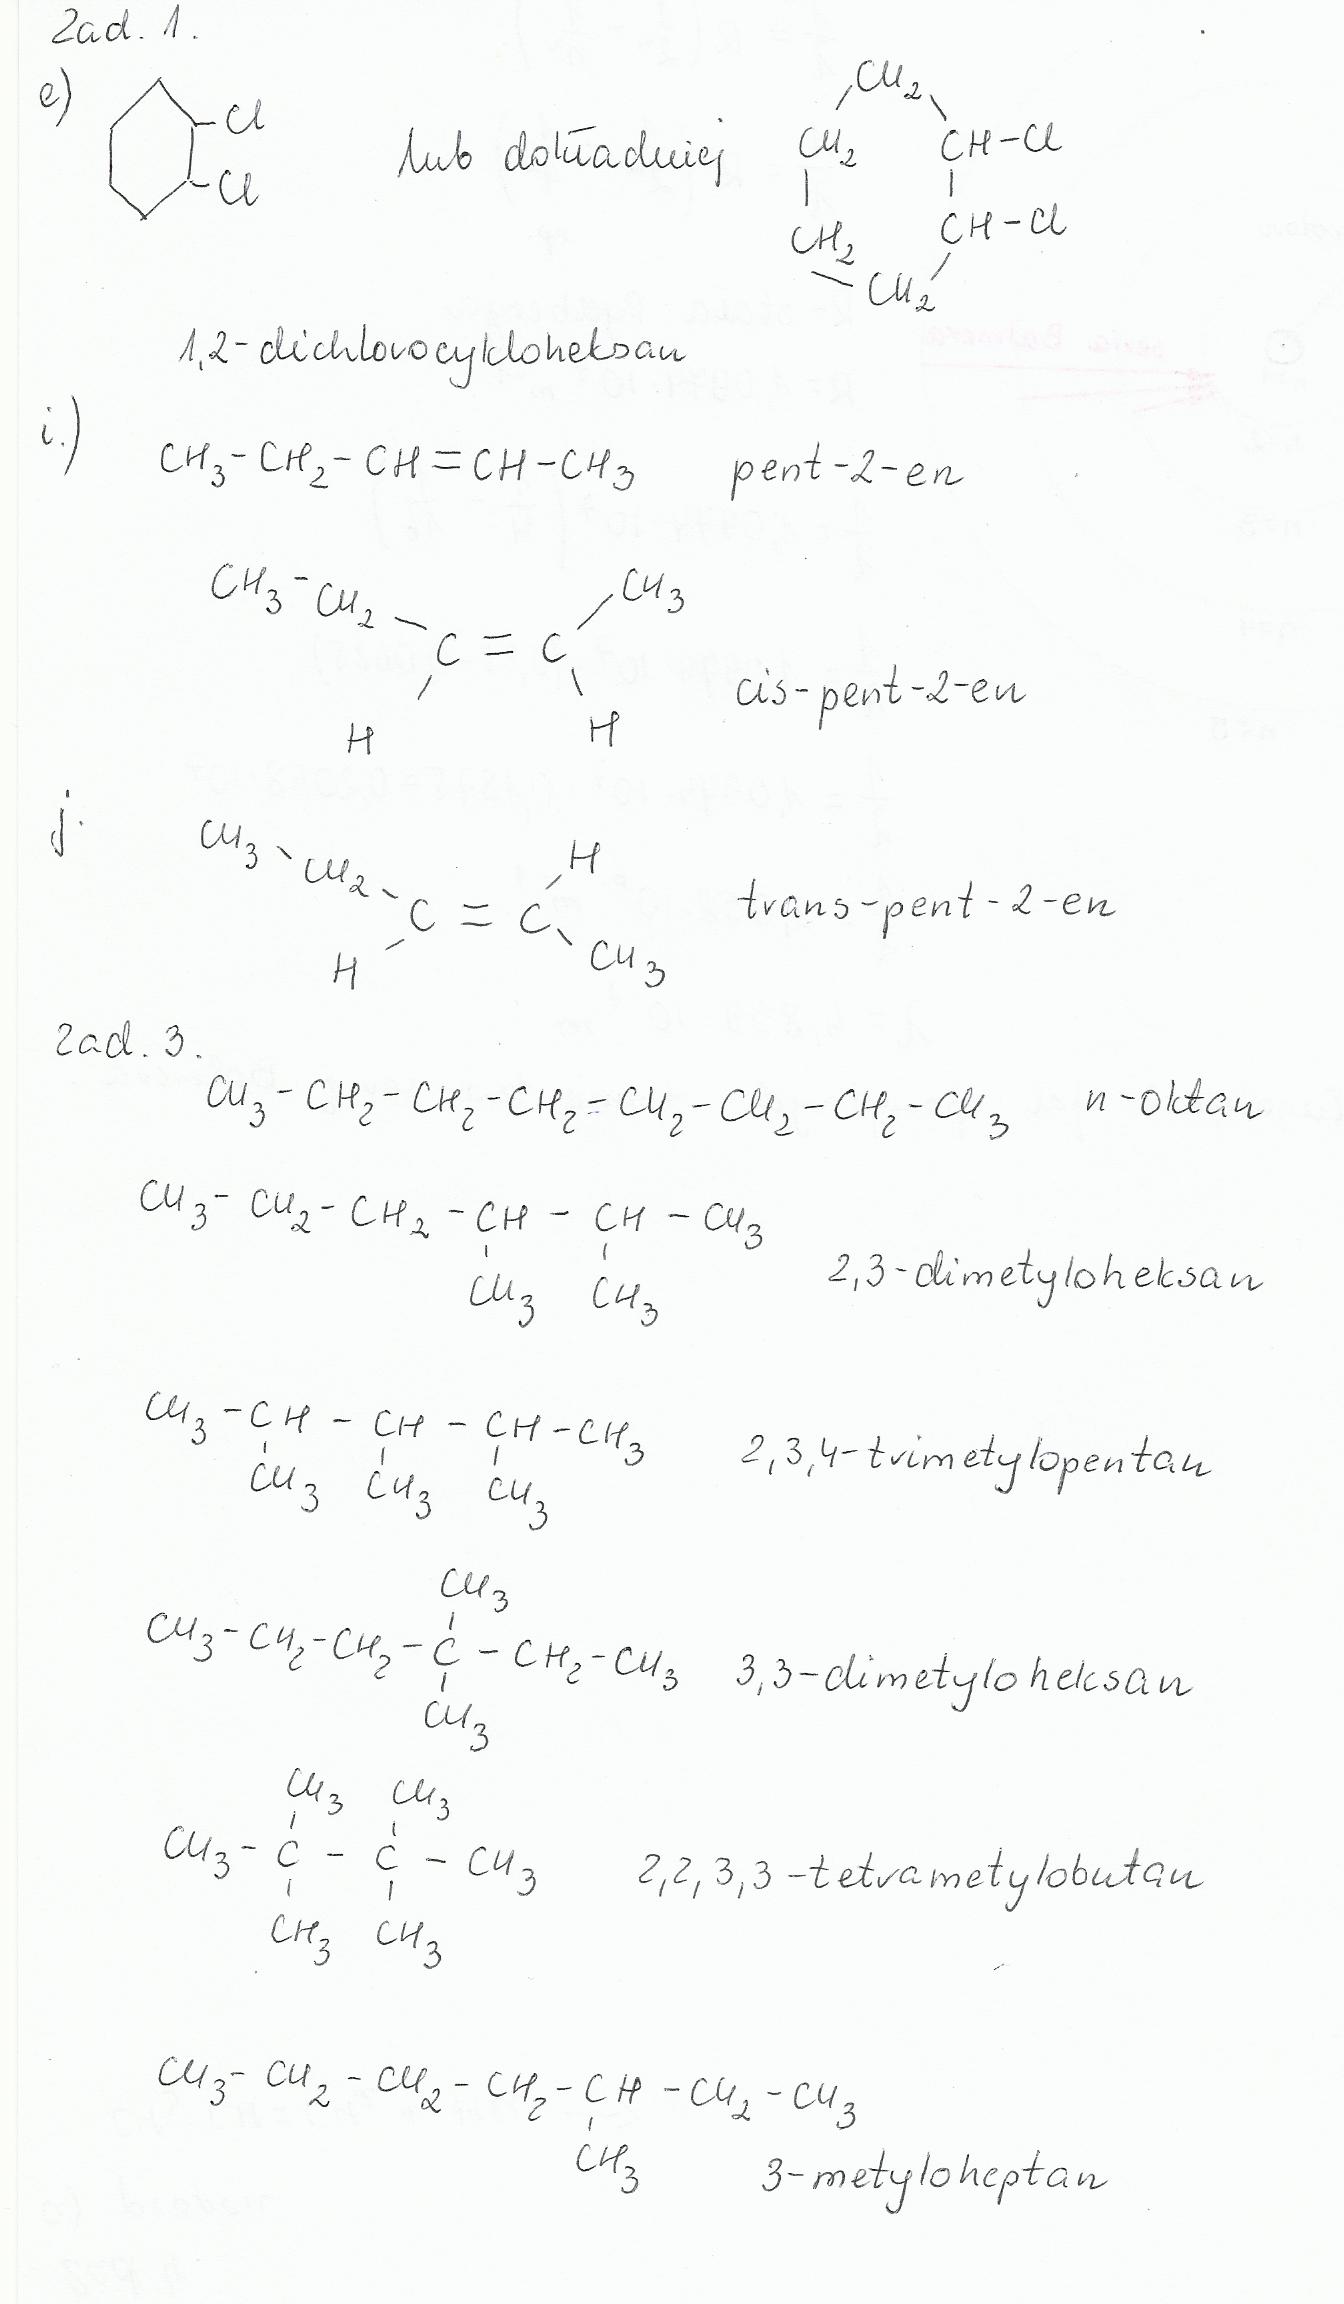 Zad. 1.
e)
Cl
Cl
lub dokładniej
CH2
CH2 CH-Cl
CH2 CH-Cl
CH2
1,2-dichlorocykloheksan
i.)
CH3-CH2-CH=CH-CH3 pent-2-en
CH3-CH2 CH3
C=C
H H
cis-pent-2-en
j.
CH3-CH2 H
C=C
H CH3
trans-pent-2-en
Zad. 3.
CH3-CH2-CH2-CH2-CH2-CH2-CH2-CH3 n-oktan
CH3-CH2-CH2-CH-CH-CH3
CH3 CH3
2,3-dimetyloheksan
CH3-CH-CH-CH-CH3 2,3,4-trimetylopentan
CH3 CH3 CH3
CH3
CH3-CH2-CH2-C-CH2-CH3 3,3-dimetyloheksan
CH3
CH3 CH3
CH3-C-C-CH3 2,2,3,3-tetrametylobutan
CH3 CH3
CH3-CH2-CH2-CH2-CH-CH2-CH3
CH3
3-metyloheptan